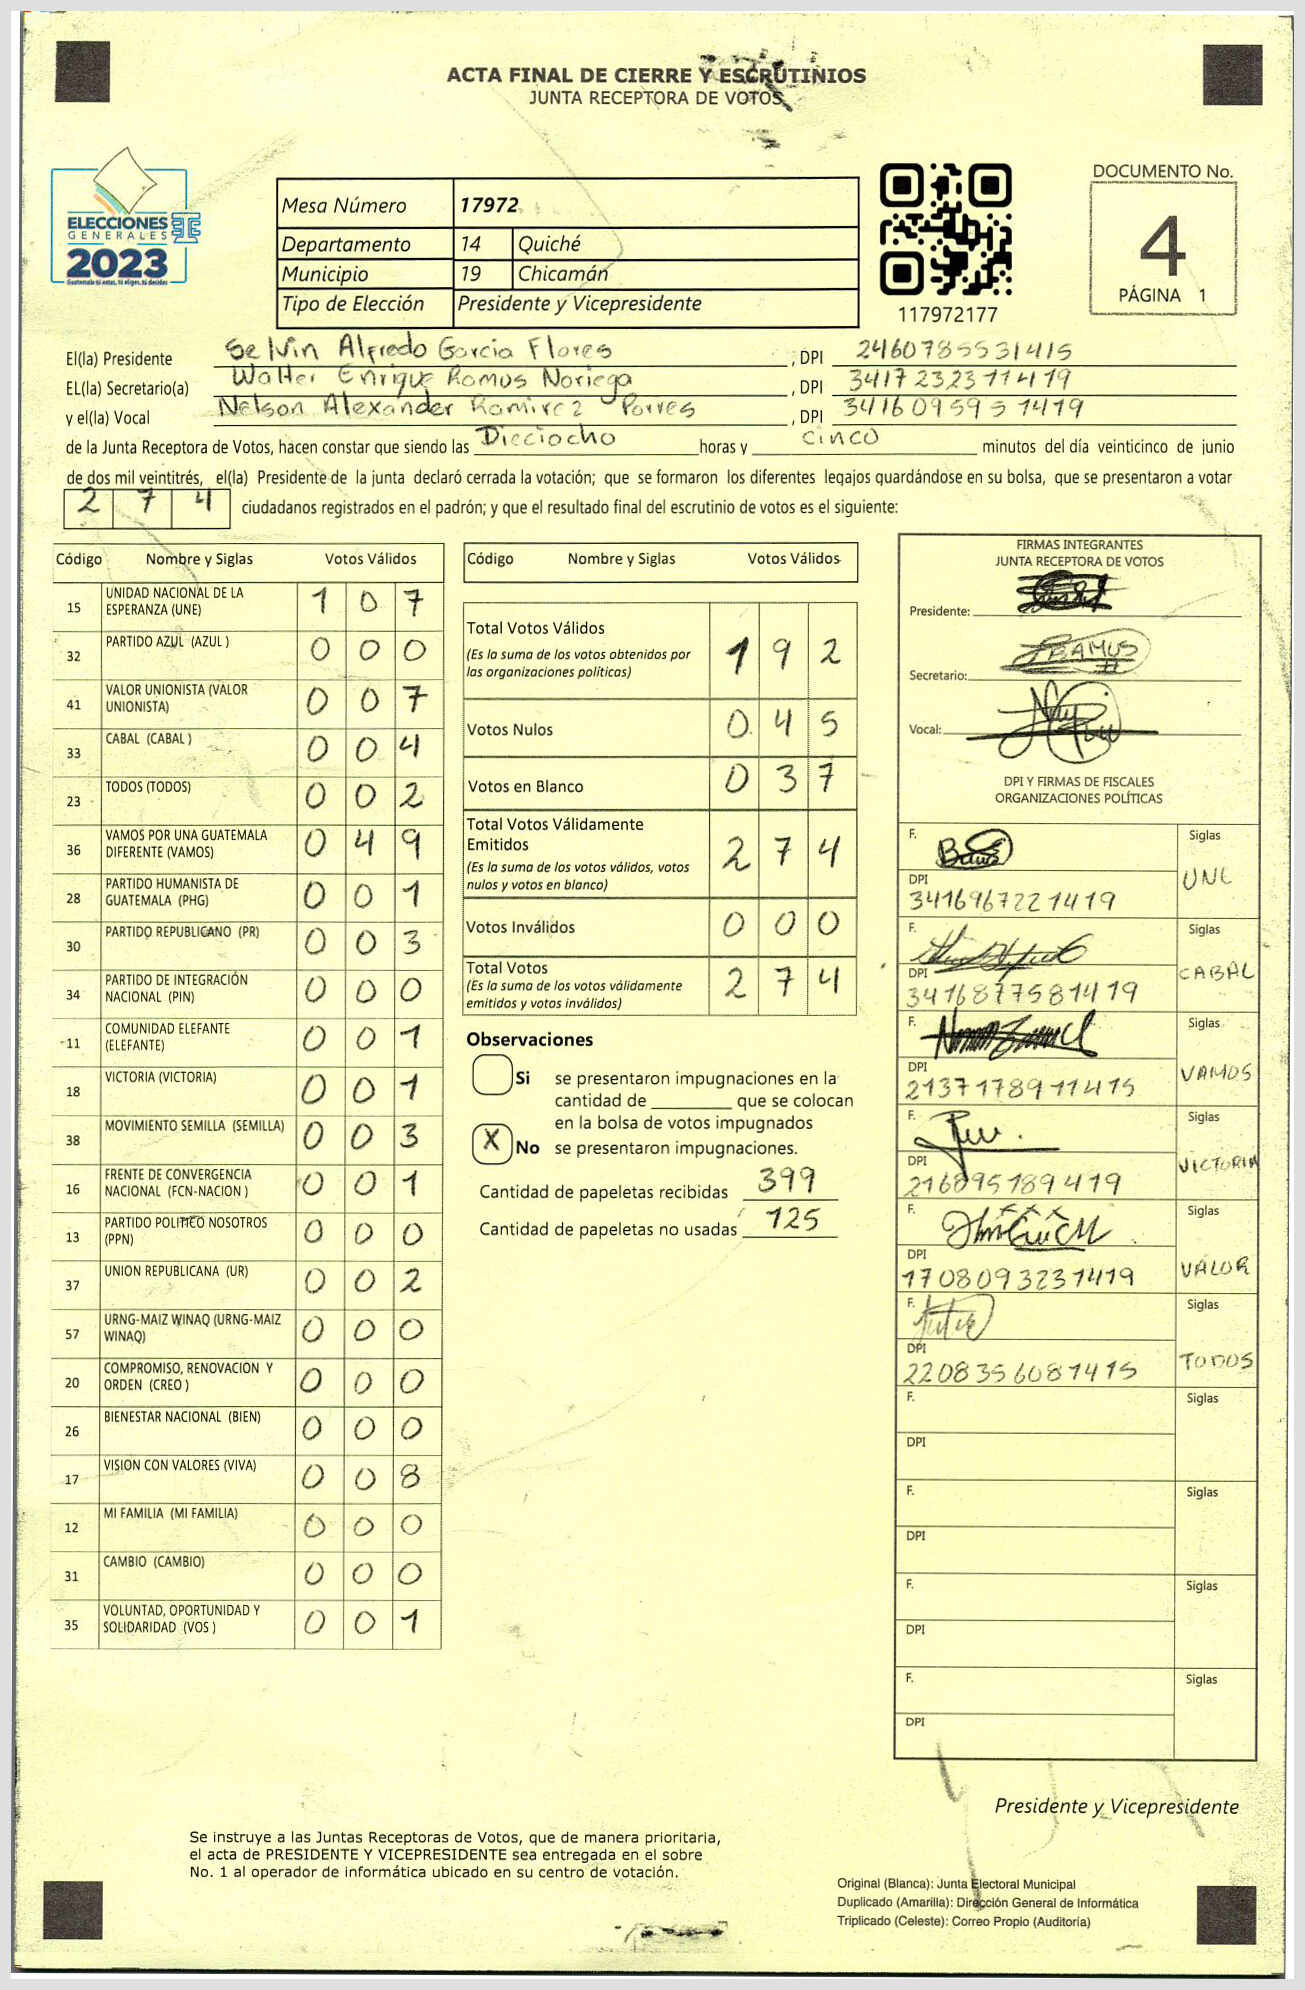 ACTA FINAL DE CIERRE Y ESCRUTINIOS
JUNTA RECEPTORA DE VOTOS
ELECCIONES
GENERALES
2023
Guatemala tú votas, tú eliges, tú decides
Mesa Número 17972
Departamento 14 Quiché
Municipio 19 Chicamán
Tipo de Elección Presidente y Vicepresidente
117972177
DOCUMENTO No.
4
PÁGINA 1
El(la) Presidente Selvin Alfredo Garcia Flores, DPI 2460785531415
EL(la) Secretario(a) Walter Enrique Ramos Noriega, DPI 3417232311419
y el(la) Vocal Nelson Alexander Ramirez Porres, DPI 3416095951419
de la Junta Receptora de Votos, hacen constar que siendo las Dieciocho horas y cinco minutos del día veinticinco de junio
de dos mil veintitrés, el(la) Presidente de la junta declaró cerrada la votación; que se formaron los diferentes legajos guardándose en su bolsa, que se presentaron a votar
2 7 4 ciudadanos registrados en el padrón; y que el resultado final del escrutinio de votos es el siguiente:
Código Nombre y Siglas Votos Válidos
15 UNIDAD NACIONAL DE LA ESPERANZA (UNE) 1 0 7
32 PARTIDO AZUL (AZUL ) 0 0 0
41 VALOR UNIONISTA (VALOR UNIONISTA) 0 0 7
33 CABAL (CABAL ) 0 0 4
23 TODOS (TODOS) 0 0 2
36 VAMOS POR UNA GUATEMALA DIFERENTE (VAMOS) 0 4 9
28 PARTIDO HUMANISTA DE GUATEMALA (PHG) 0 0 1
30 PARTIDO REPUBLICANO (PR) 0 0 3
34 PARTIDO DE INTEGRACIÓN NACIONAL (PIN) 0 0 0
11 COMUNIDAD ELEFANTE (ELEFANTE) 0 0 1
18 VICTORIA (VICTORIA) 0 0 1
38 MOVIMIENTO SEMILLA (SEMILLA) 0 0 3
16 FRENTE DE CONVERGENCIA NACIONAL (FCN-NACION ) 0 0 1
13 PARTIDO POLITICO NOSOTROS (PPN) 0 0 0
37 UNION REPUBLICANA (UR) 0 0 2
57 URNG-MAIZ WINAQ (URNG-MAIZ WINAQ) 0 0 0
20 COMPROMISO, RENOVACION Y ORDEN (CREO ) 0 0 0
26 BIENESTAR NACIONAL (BIEN) 0 0 0
17 VISION CON VALORES (VIVA) 0 0 8
12 MI FAMILIA (MI FAMILIA) 0 0 0
31 CAMBIO (CAMBIO) 0 0 0
35 VOLUNTAD, OPORTUNIDAD Y SOLIDARIDAD (VOS ) 0 0 1
Código Nombre y Siglas Votos Válidos
Total Votos Válidos 1 9 2
(Es la suma de los votos obtenidos por
las organizaciones políticas)
Votos Nulos 0 4 5
Votos en Blanco 0 3 7
Total Votos Válidamente
Emitidos 2 7 4
(Es la suma de los votos válidos, votos
nulos y votos en blanco)
Votos Inválidos 0 0 0
Total Votos 2 7 4
(Es la suma de los votos válidamente
emitidos y votos inválidos)
Observaciones
Si se presentaron impugnaciones en la
cantidad de que se colocan
en la bolsa de votos impugnados
X No se presentaron impugnaciones.
Cantidad de papeletas recibidas 399
Cantidad de papeletas no usadas 125
FIRMAS INTEGRANTES
JUNTA RECEPTORA DE VOTOS
Presidente:
Secretario: RAMUS
Vocal:
DPI Y FIRMAS DE FISCALES
ORGANIZACIONES POLÍTICAS
F. Siglas
UNE
DPI
3416967221419
F. Siglas
CABAL
DPI
3416877581419
F. Siglas
VAMOS
DPI
2137178911415
F. Siglas
VICTORIA
DPI
216895189419
F. Siglas
VALOR
DPI
1708093231419
F. Siglas
TODOS
DPI
2208356081415
F. Siglas
DPI
F. Siglas
DPI
F. Siglas
DPI
F. Siglas
DPI
Presidente y Vicepresidente
Se instruye a las Juntas Receptoras de Votos, que de manera prioritaria,
el acta de PRESIDENTE Y VICEPRESIDENTE sea entregada en el sobre
No. 1 al operador de informática ubicado en su centro de votación.
Original (Blanca): Junta Electoral Municipal
Duplicado (Amarilla): Dirección General de Informática
Triplicado (Celeste): Correo Propio (Auditoría)